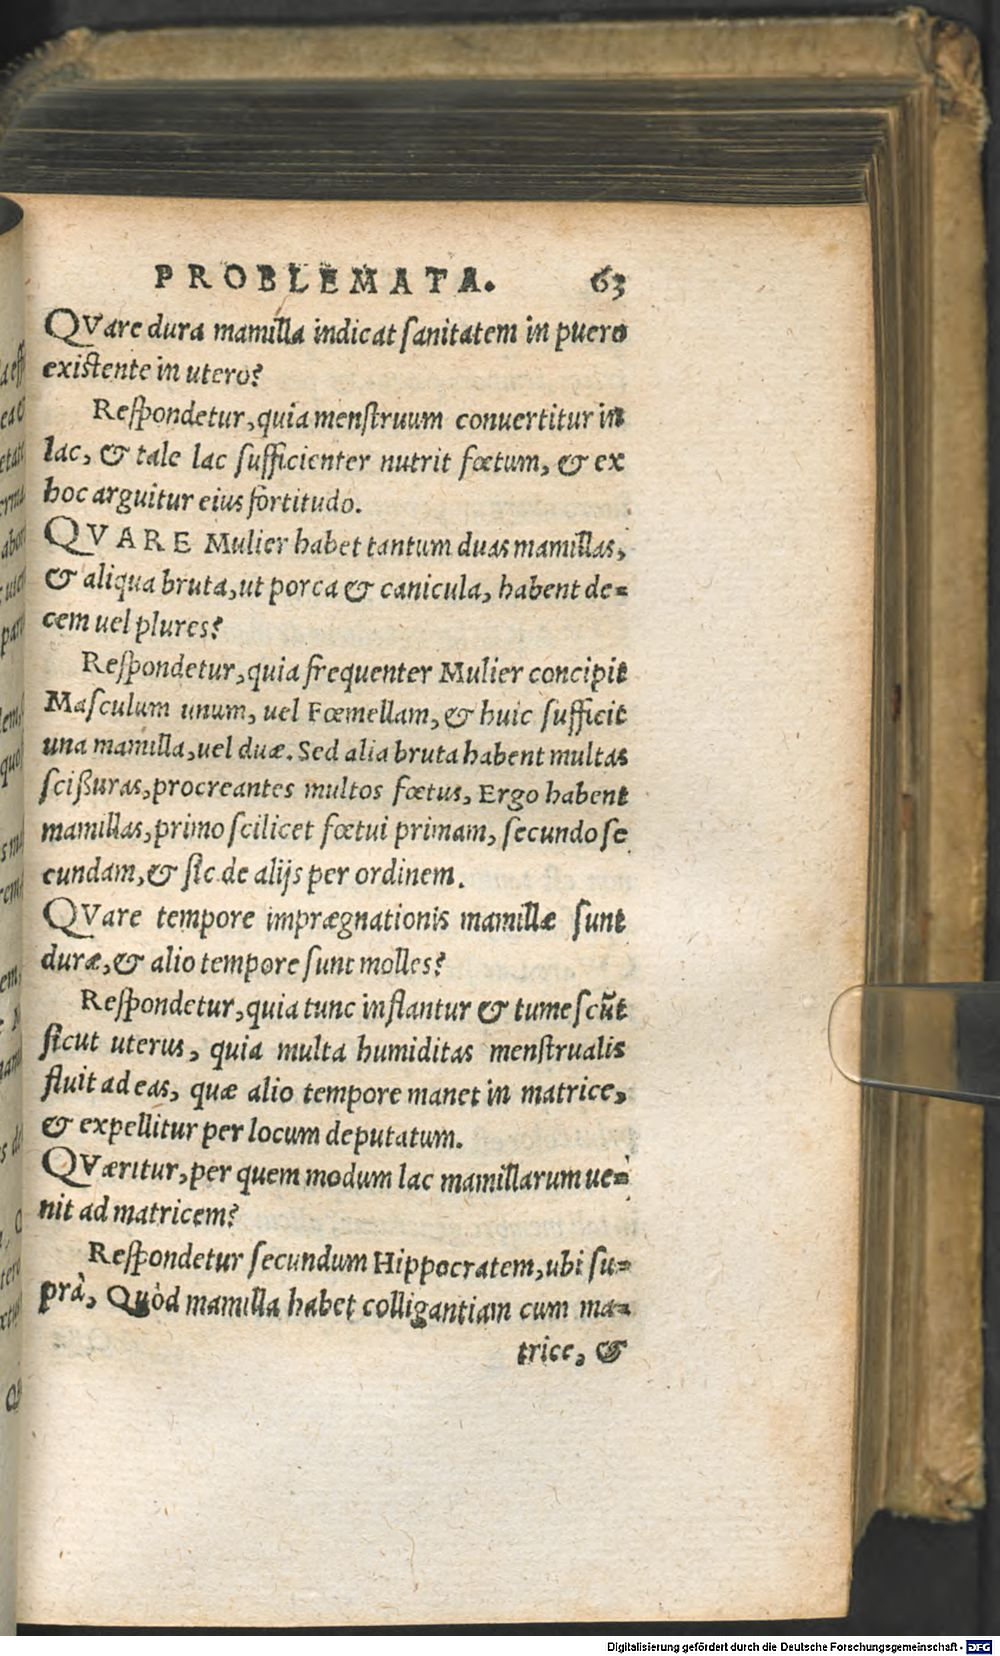 PROBLEMATA. 63
QVare dura mamilla indicat ſanitatem in puero
exiſtente in utero?
Reſpondetur, quia menſtruum conuertitur in
lac, & tale lac ſufficienter nutrit fœtum, & ex
hoc arguitur eius fortitudo.
QVARE Mulier habet tantum duas mamillas,
& aliqua bruta, ut porca & canicula, habent de=
cem uel plures?
Reſpondetur, quia frequenter Mulier concipit
Maſculum unum, uel Fœmellam, & huic ſufficit
una mamilla, uel duæ. Sed alia bruta habent multas
ſcißuras, procreantes multos fœtus, Ergo habent
mamillas, primo ſcilicet fœtui primam, ſecundo ſe
cundam, & ſic de alijs per ordinem.
QVare tempore imprægnationis mamillæ ſunt
duræ, & alio tempore ſunt molles?
Reſpondetur, quia tunc inflantur & tumeſcūt
ſicut uterus, quia multa humiditas menſtrualis
fluit ad eas, quæ alio tempore manet in matrice,
& expellitur per locum deputatum.
QVæritur, per quem modum lac mamillarum ue=
nit ad matricem?
Reſpondetur ſecundum Hippocratem, ubi ſu=
prà, Quòd mamilla habet colligantiam cum ma=
trice, &
Digitalisierung gefördert durch die Deutsche Forschungsgemeinschaft - DFG